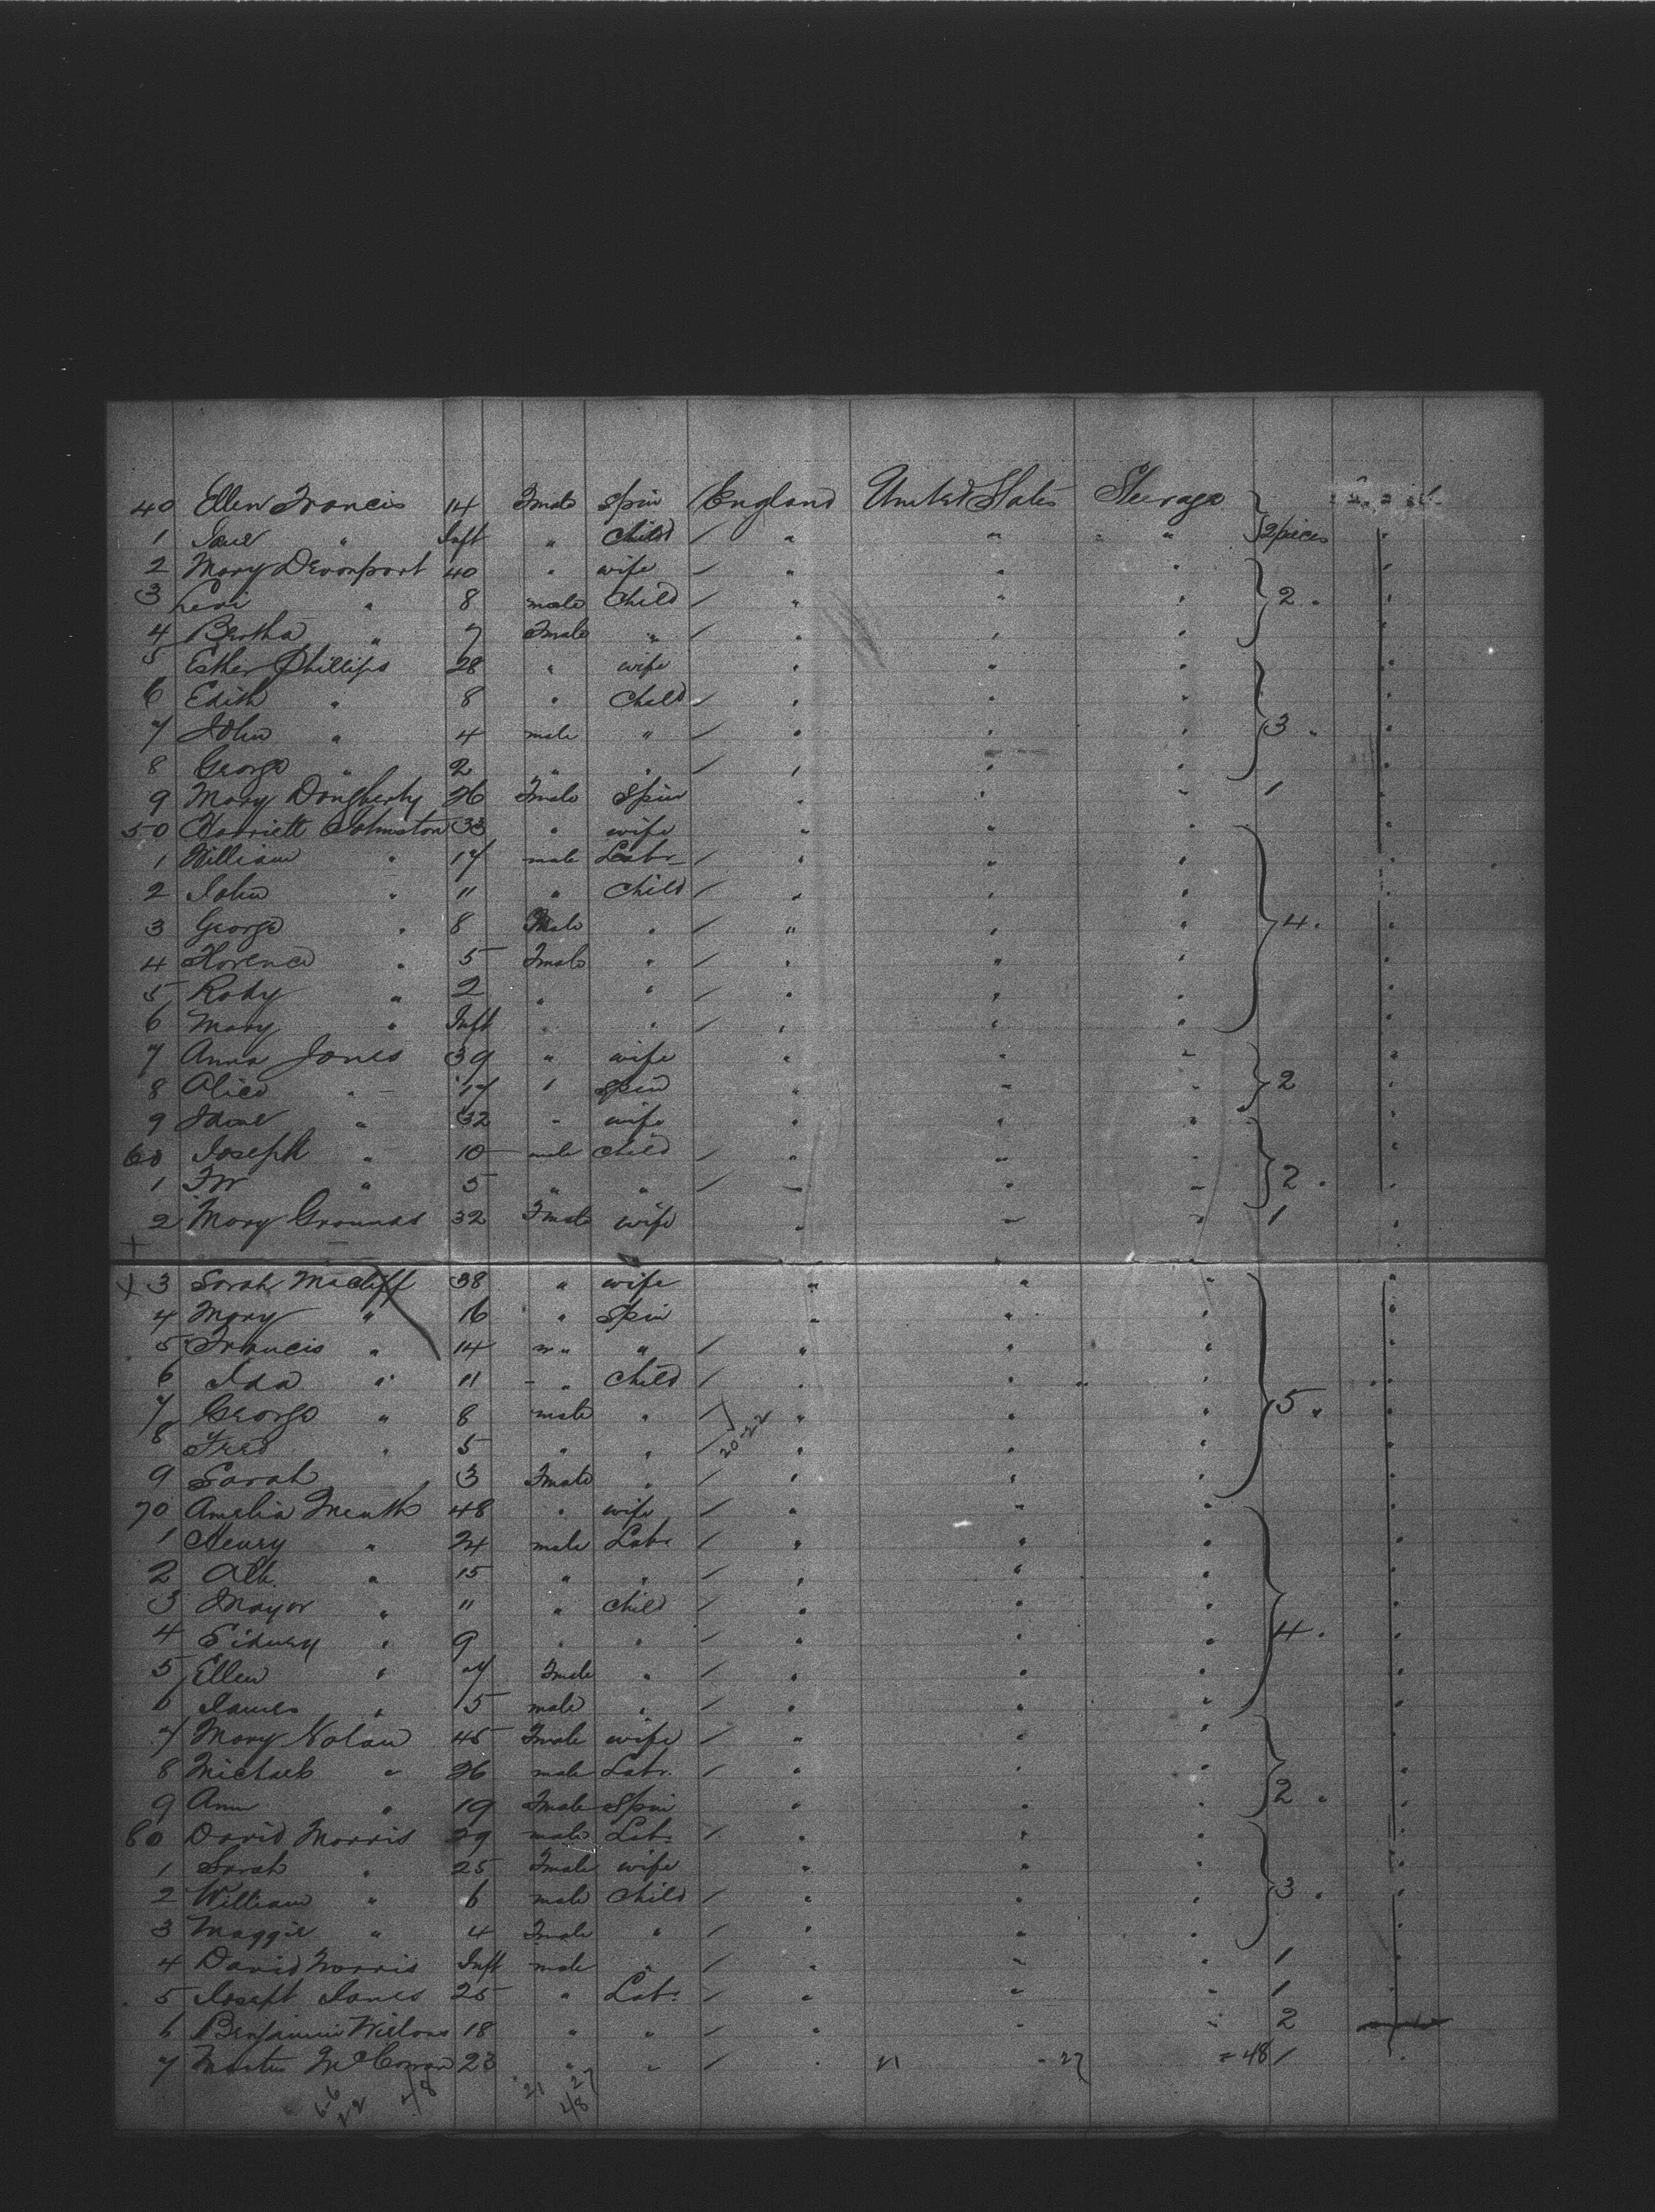 40 Ellen Francis 14 Fmale Spin / England United States Steerage
1 Jane " Inft " Child / " " " 2 pieces
2 Mary Devonport 40 " wife / " " "
3 Levi " 8 male Child / " " " 2 "
4 Bertha " 7 Fmale " / " " "
5 Esther Phillips 28 " wife " " "
6 Edith " 8 " Child / " " "
7 John " 4 male " / " " " 3 "
8 George " 2 " " / " " "
9 Mary Dougherty 26 Fmale Spin " " " 1
50 Harriett Johnston 33 " wife " " "
1 William " 17 male Labr / " " "
2 John " 11 " Child / " " "
3 George " 8 Male " / " " " 4 "
4 Florence " 5 Fmale " / " " "
5 " 2 " " / " " "
6 Mary " Inft " " / " " "
7 Anna Jones 39 " wife " " "
8 Alice " 17 " Spin " " " 2
9 Jane " 32 " wife " " "
60 Joseph " 10 male Child / " " "
1 FW " 5 " " / " " " 2 "
2 Mary Grounds 32 Fmale wife " " " 1
+
X 3 Sarah 38 " wife " " "
4 Mary " 16 " Spin " " "
5 Francis " 14 " " / " " "
6 Ida " 11 " Child / " " "
7 George " 8 male " / " " " 5 "
8 Fred " 5 " " / 20-22 " " "
9 Sarah 3 Fmale " / " " "
70 Amelia 48 " wife / " " "
1 Henry " 24 male Labr / " " "
2 Alb. " 15 " " / " " "
3 " 11 " Child / " " "
4 Sidney " 9 " " / " " " 4 "
5 Ellen " 7 Fmale " / " " "
6 James " 5 male " / " " "
7 Mary Nolan 45 Fmale wife / " " "
8 Michael " 26 male Labr. / " " "
9 Ann " 19 Fmale Spin " " " 2 "
80 David Morris 29 male Labr / " " "
1 Sarah " 25 Fmale wife " " "
2 William " 6 male Child / " " " 3 "
3 Maggie " 4 Fmale " / " " "
4 David Morris Inft male " / " " " 1
5 Joseph Jones 25 " Labr / " " " 1
6 Benjamin 18 " " / " " " 2
7 Martin 23 " " / " 21 - 27 = 48 1
66 22 48 21 27
48